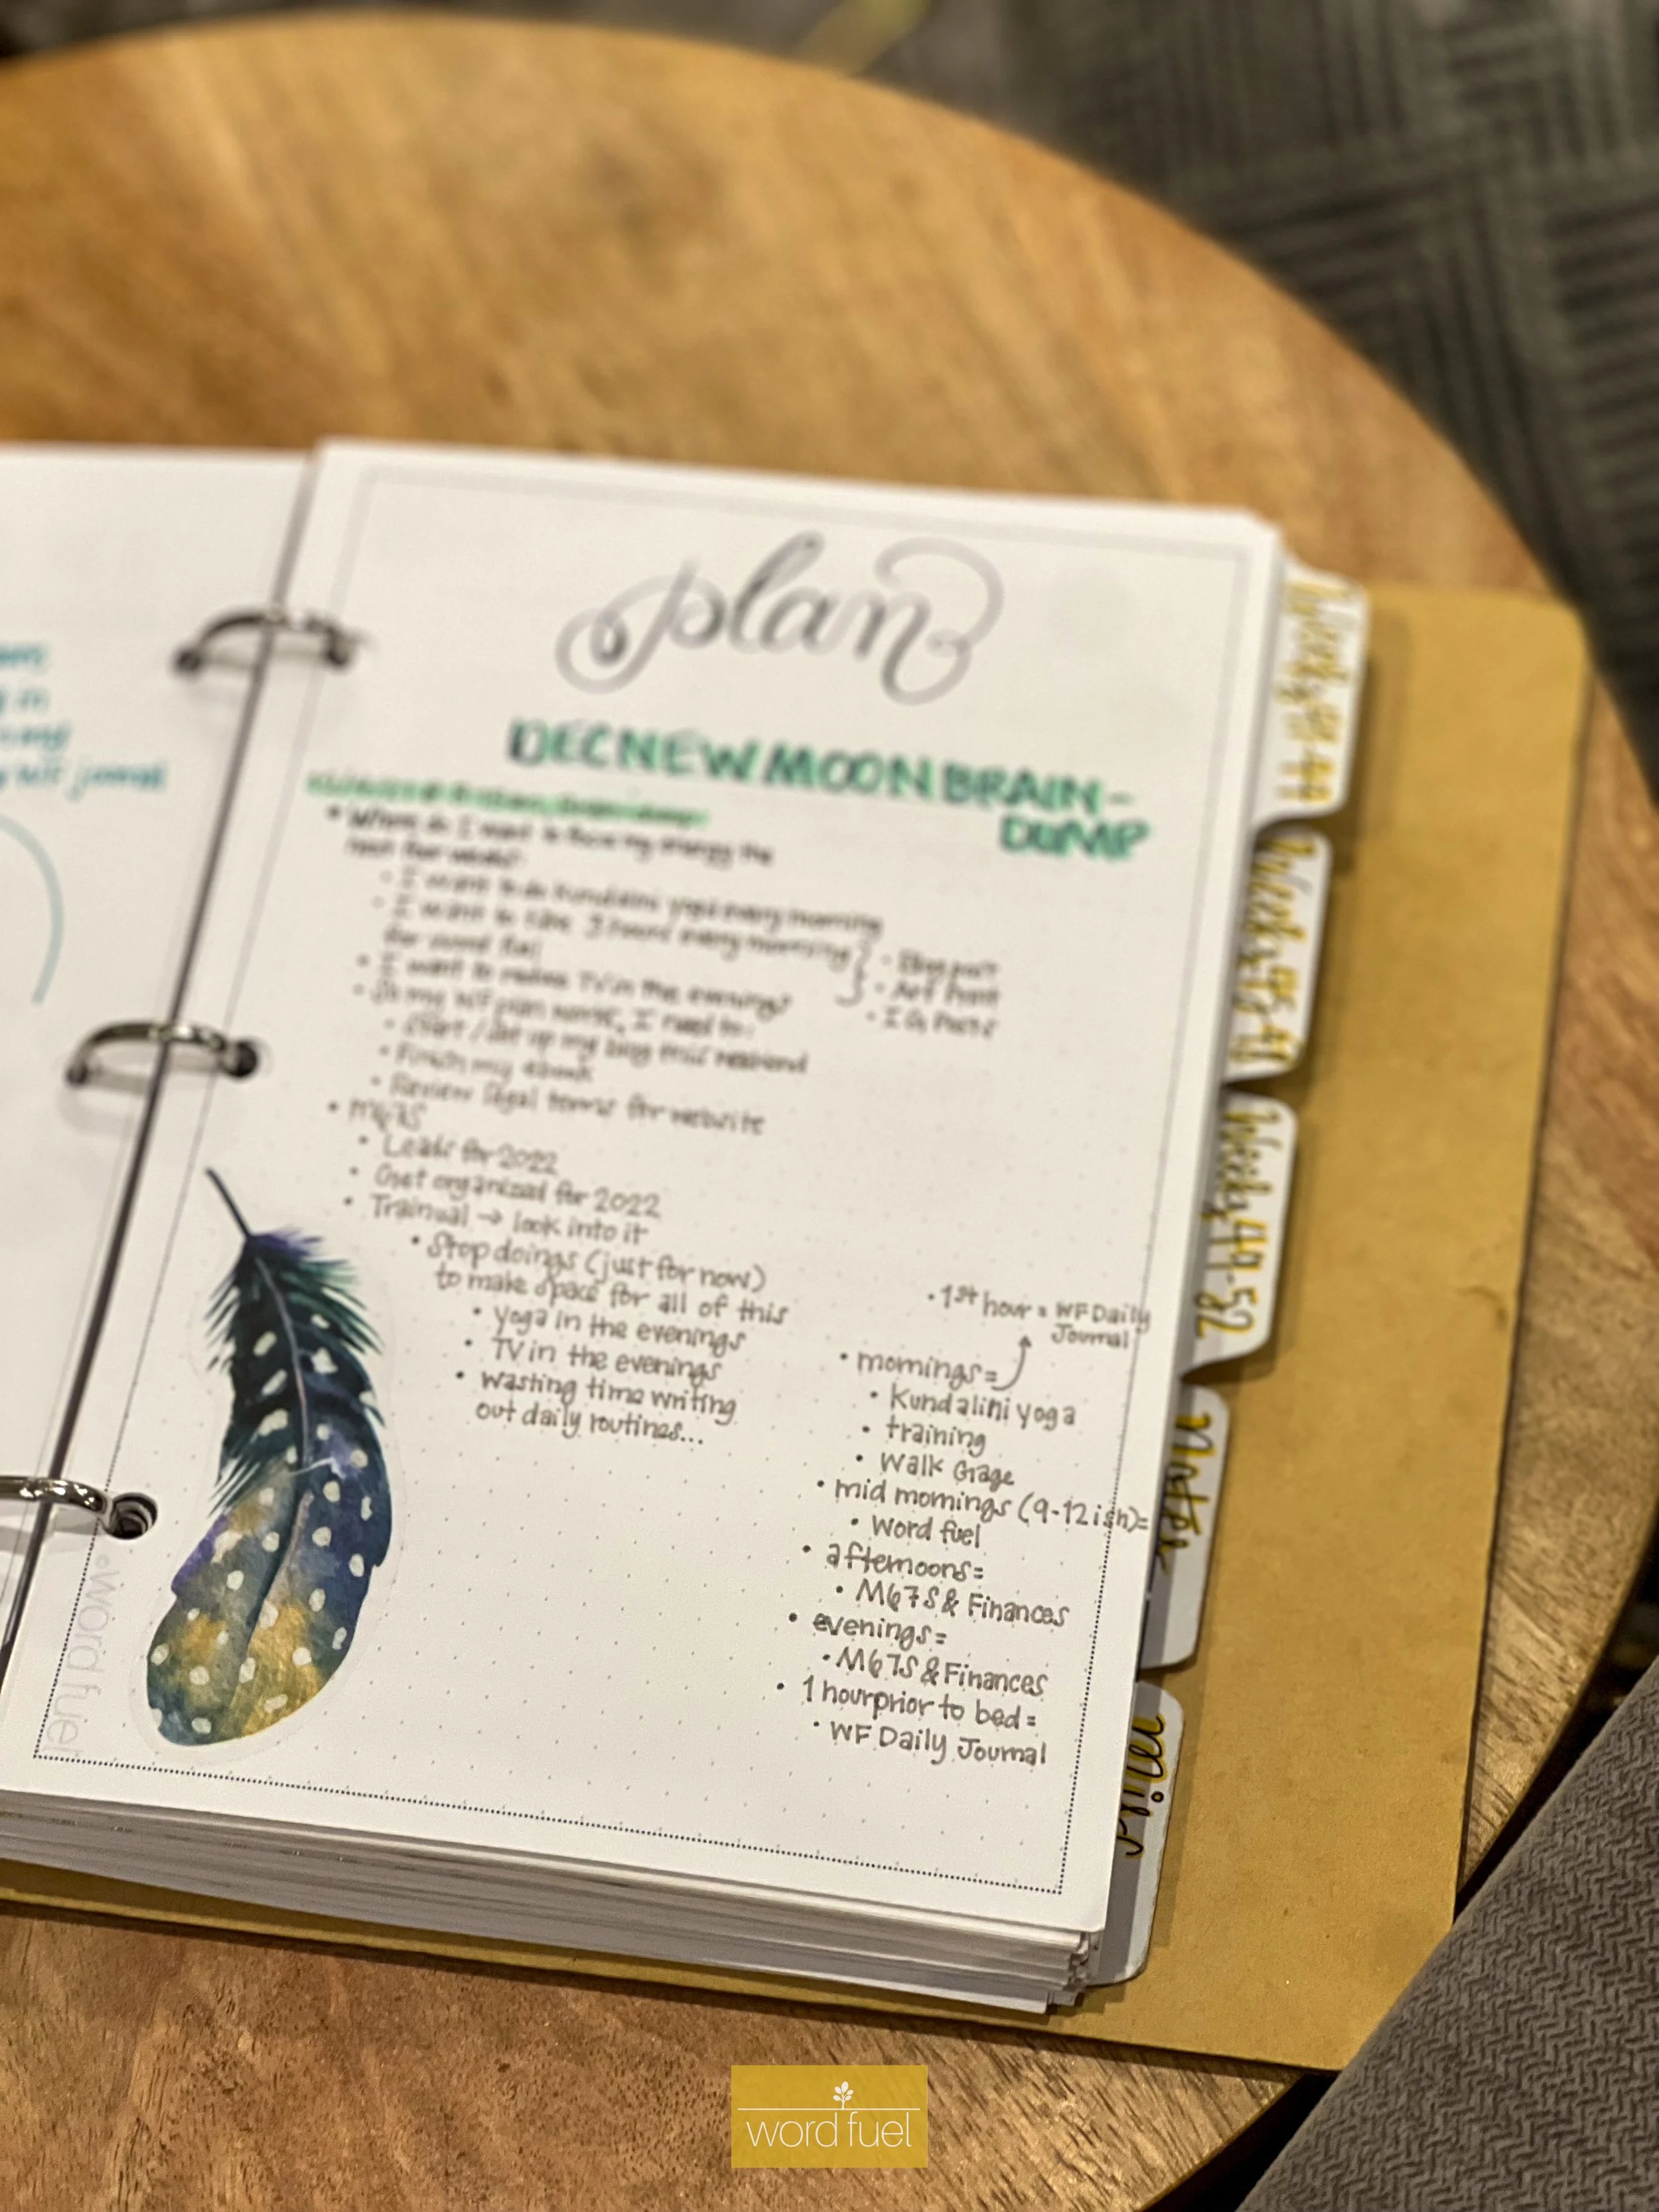 plan
DEC NEW MOON BRAIN-
DUMP
• Where do I want to focus my energy the
next few weeks?
• I want to do Kundalini yoga every morning
• I want to take 3 hours every morning
for word fuel
• Blog post
• Art Print
• IG Posts
• I want to reduce TV in the evenings
• In my WF plan I need to:
• Start / set up my blog this weekend
• Finish my ebook
• Review legal terms for website
• M67S
• Leads for 2022
• Get organized for 2022
• Trainual → look into it
• Stop doings (just for now)
to make space for all of this
• yoga in the evenings
• TV in the evenings
• wasting time writing
out daily routines...
• 1st hour = WF Daily
Journal
• mornings =
• Kundalini yoga
• training
• Walk Gage
• mid mornings (9-12ish)=
• Word fuel
• afternoons=
• M67S & Finances
• evenings=
• M67S & Finances
• 1 hour prior to bed =
• WF Daily Journal
©word fuel
Weekly 49-52
Notes
word fuel